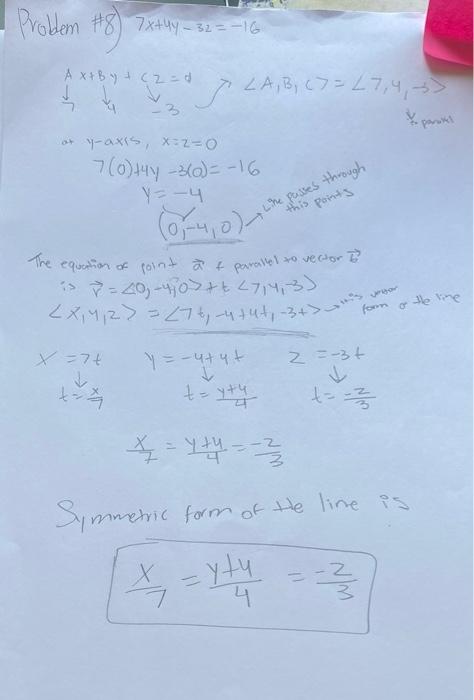 Problem #8) 7x+4y-3z=-16
Ax+By+Cz=d
↓ ↓ ↓
7 4 -3
<A,B,C>=<7,4,-3>
parallel
at y-axis, x=z=0
7(0)+4y-3(0)=-16
y=-4
(0,-4,0) → Line passes through this points
The equation of point a⃗ & parallel to vector b⃗
is r⃗=<0,-4,0>+t<7,4,-3>
<x,y,z>=<7t,-4+4t,-3t> → this vector form of the line
x=7t y=-4+4t z=-3t
↓ ↓ ↓
t=x/7 t=y+4/4 t=-z/3
x/7=y+4/4=-z/3
Symmetric form of the line is
x/7=y+4/4=-z/3